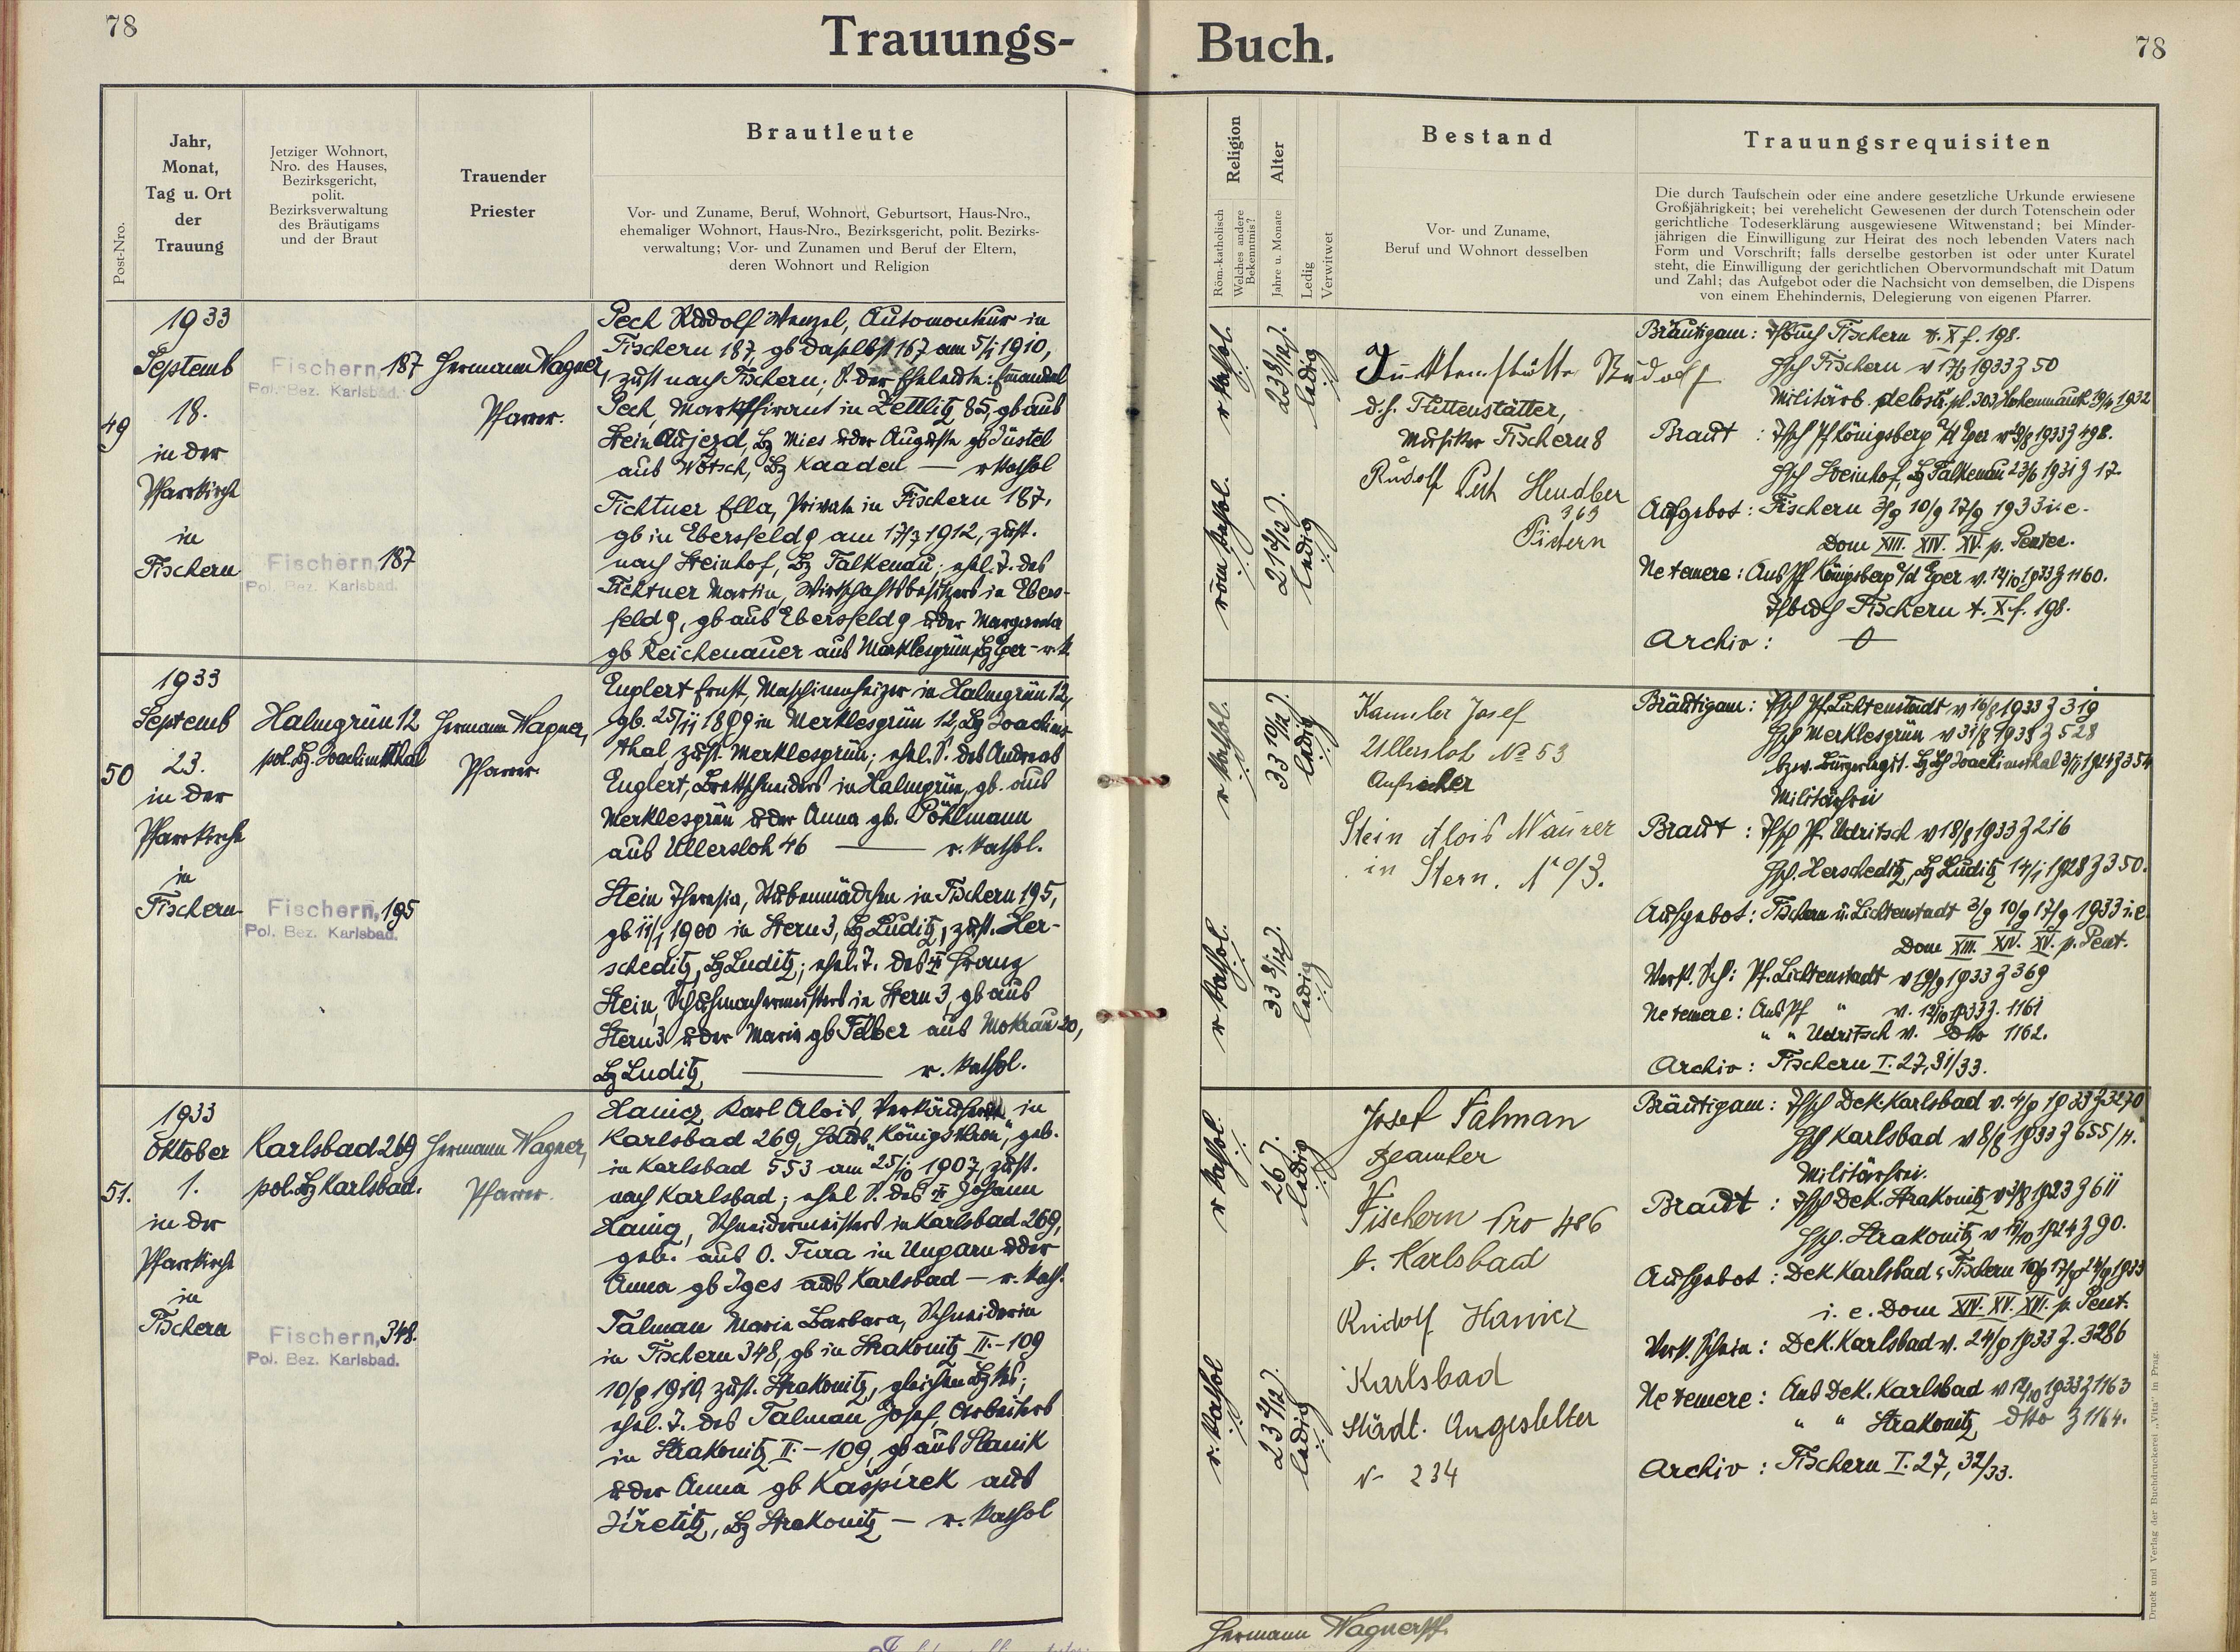 78
Trauungs-
Buch.
78
Post-Nro.
Jahr,
Monat,
Tag u. Ort
der
Trauung
Jetziger Wohnort,
Nro. des Hauses,
Bezirksgericht,
polit.
Bezirksverwaltung
des Bräutigams
und der Braut
Trauender
Priester
Brautleute
Vor- und Zuname, Beruf, Wohnort, Geburtsort, Haus-Nro.,
ehemaliger Wohnort, Haus-Nro., Bezirksgericht, polit. Bezirks-
verwaltung; Vor- und Zunamen und Beruf der Eltern,
deren Wohnort und Religion
Religion
Röm.-katholisch
Welches andere
Bekenntnis?
Alter
Jahre u. Monate
Ledig
Verwitwet
Bestand
Vor- und Zuname,
Beruf und Wohnort desselben
Trauungsrequisiten
Die durch Taufschein oder eine andere gesetzliche Urkunde erwiesene
Großjährigkeit; bei verehelicht Gewesenen der durch Totenschein oder
gerichtliche Todeserklärung ausgewiesene Witwenstand; bei Minder-
jährigen die Einwilligung zur Heirat des noch lebenden Vaters nach
Form und Vorschrift; falls derselbe gestorben ist oder unter Kuratel
steht, die Einwilligung der gerichtlichen Obervormundschaft mit Datum
und Zahl; das Aufgebot oder die Nachsicht von demselben, die Dispens
von einem Ehehindernis, Delegierung von eigenen Pfarrer.
49
1933
Septemb
18.
in der
Pfarrkirche
in
Fischern
Fischern, 187
Pol. Bez. Karlsbad.
Fischern, 187
Pol. Bez. Karlsbad.
Hermann Wagner,
Pfarrer.
Pech Rudolf Wenzel, Automonteur in
Fischern 187, gb daselbst 167 am 5/1 1910,
zust nach Fischern; S. der Eheleute: Emanuel
Pech, Marktfirant in Zettlitz 85, gb aus
Stein Aujezd, Bz Mies u der Auguste gb Justel
aus Wotsch, Bz Kaaden — r kathol
Fichtner Ella, Private in Fischern 187,
gb in Ebersfeld 9 am 17/3 1912, zust.
nach Steinhof, Bz Falkenau; ehel. T. des
Fichtner Martin, Wirtschaftsbesitzers in Ebers-
feld 9, gb aus Ebersfeld 9 u der Margareta
gb Reichenauer aus Marklesgrün, Bz Eger - r. k
r kathol.
23 8/12 J.
ledig
röm kathol.
21 6/12 J.
ledig
Rudolf
d. h. Flittenstätter,
Musiker Fischern 8
Rudolf Pech Händler
363
Fischern
Bräutigam: Tfbuch Fischern t. X f. 198.
Hsch Fischern v 17/3 1933 Z 50
Braut : Tfsch Pf Königsberg a/d Eger v 9/8 1933 Z 498.
Hsch Steinhof, Bz Falkenau 23/6 1931 Z 17.
Aufgebot: Fischern 3/9 10/9 17/9 1933 i. e.
Dom XIII. XIV. XV. p. Pentec.
Ne temere: Aus Pf Königsberg a/d Eger v. 12/10 1933 Z 1160.
Tfbuch Fischern t. X f. 198.
Archiv:
50
1933
Septemb
23.
in der
Pfarrkirche
in
Fischern
Halmgrün 12
pol. Bz. Joachimsthal
Fischern, 195
Pol. Bez. Karlsbad.
Hermann Wagner,
Pfarrer
Englert Ernst, Maschinenheizer in Halmgrün 12,
gb. 25/11 1899 in Merklesgrün 12, Bz Joachims-
thal, zust. Merklesgrün; ehel. S. des Andreas
Englert, Brettschneiders in Halmgrün, gb. aus
Merklesgrün u der Anna gb. Pöhlmann
aus Ullersloh 46 — r. kathol.
Stein Theresia, Stubenmädchen in Fischern 195,
gb 11/1 1900 in Stern 3, Bz Luditz, zust. Her-
scheditz, Bz Luditz; ehel. T. des † Franz
Stein, Schuhmachermeisters in Stern 3, gb aus
Stern 3 u der Maria gb Felber aus Mokrau 20,
Bz Luditz, — r. kathol.
r kathol.
33 10/12 J.
ledig
r kathol.
33 8/12 J.
ledig
Kannler Josef
Ullersloh No 53
Aufseher
Stein Alois Maurer
in Stern. No 3.
Bräutigam: Tfsch Pf. Lichtenstadt v 16/8 1933 Z 319
Hsch Merklesgrün v 31/8 1933 Z 528
Militärfrei
Braut : Tfsch Pf. Udritsch v 18/8 1933 Z 216
Hsch. Herscheditz, Bz Luditz 14/1 1928 Z 350.
Aufgebot: Fischern u. Lichtenstadt 3/9 10/9 17/9 1933 i. e.
Dom XIII. XIV. XV. p. Pent.
Verk. Sch: Pf. Lichtenstadt v 19/9 1933 Z 369
Ne temere: Aus Pf " v. 12/10 1933 Z. 1161
" " Udritsch v. dto 1162.
Archiv: Fischern I. 27, 31/33.
51.
1933
Oktober
1.
in der
Pfarrkirche
in
Fischern
Karlsbad 269
pol. Bz Karlsbad.
Fischern, 348.
Pol. Bez. Karlsbad.
Hermann Wagner,
Pfarrer.
Hanicz Karl Alois, Verkäufer in
Karlsbad 269, Haus "Königskron", geb.
in Karlsbad 553 am 25/10 1907, zust.
nach Karlsbad; ehel S. des † Johann
Hanig, Schneidermeisters in Karlsbad 269,
geb. aus O. Tura in Ungarn u der
Anna gb Iges aus Karlsbad — r. kath.
Talman Maria Barbara, Schneiderin
in Fischern 348, gb in Strakonitz II.-109
10/8 1910, zust. Strakonitz, gleichen Bzkes;
ehel. T. des Talman Josef, Arbeiters
in Strakonitz II.-109, gb aus Slanik
u der Anna gb Kašpírek aus
Jiřetitz, Bz Strakonitz — r. kathol
r kathol.
26 J.
ledig
r. kathol
ledig
Josef Talman
Beamter
Fischern Nro 486
b. Karlsbad
Rudolf Hanicz
Karlsbad
Städt. Angestellter
N- 234
Bräutigam: Tfsch Dek. Karlsbad v. 4/9 1933 Z 3270
Hsch Karlsbad v 8/8 1933 Z 655/H.
Militärfrei.
Braut : Tfsch Dek. Strakonitz v 3/8 1923 Z 611
Hsch. Strakonitz v 12/10 1924 Z 90.
Aufgebot : Dek Karlsbad u. Fischern 10/9 17/9 24/9 1933
i. e. Dom XIV. XV. XVI. p. Pent.
Verk. Schein: Dek. Karlsbad v. 24/9 1933 Z. 3286
Ne temere: Aus Dek. Karlsbad v 12/10 1933 Z 1163
" " Strakonitz dtto Z 1164.
Archiv : Fischern I. 27, 32/33.
Hermann Wagner
Druck und Verlag der Buchdruckerei „Vita“ in Prag.